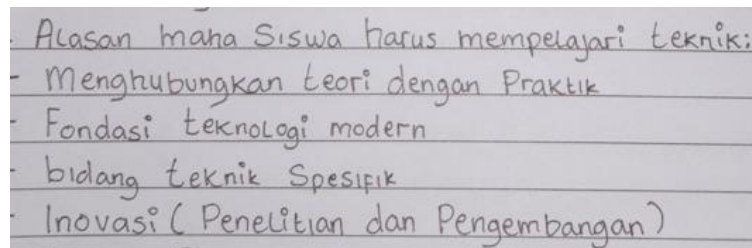 - Alasan maha Siswa harus mempelajari teknik:
- Menghubungkan teori dengan Praktik
- Fondasi teknologi modern
- bidang teknik Spesifik
- Inovasi ( Penelitian dan Pengembangan )